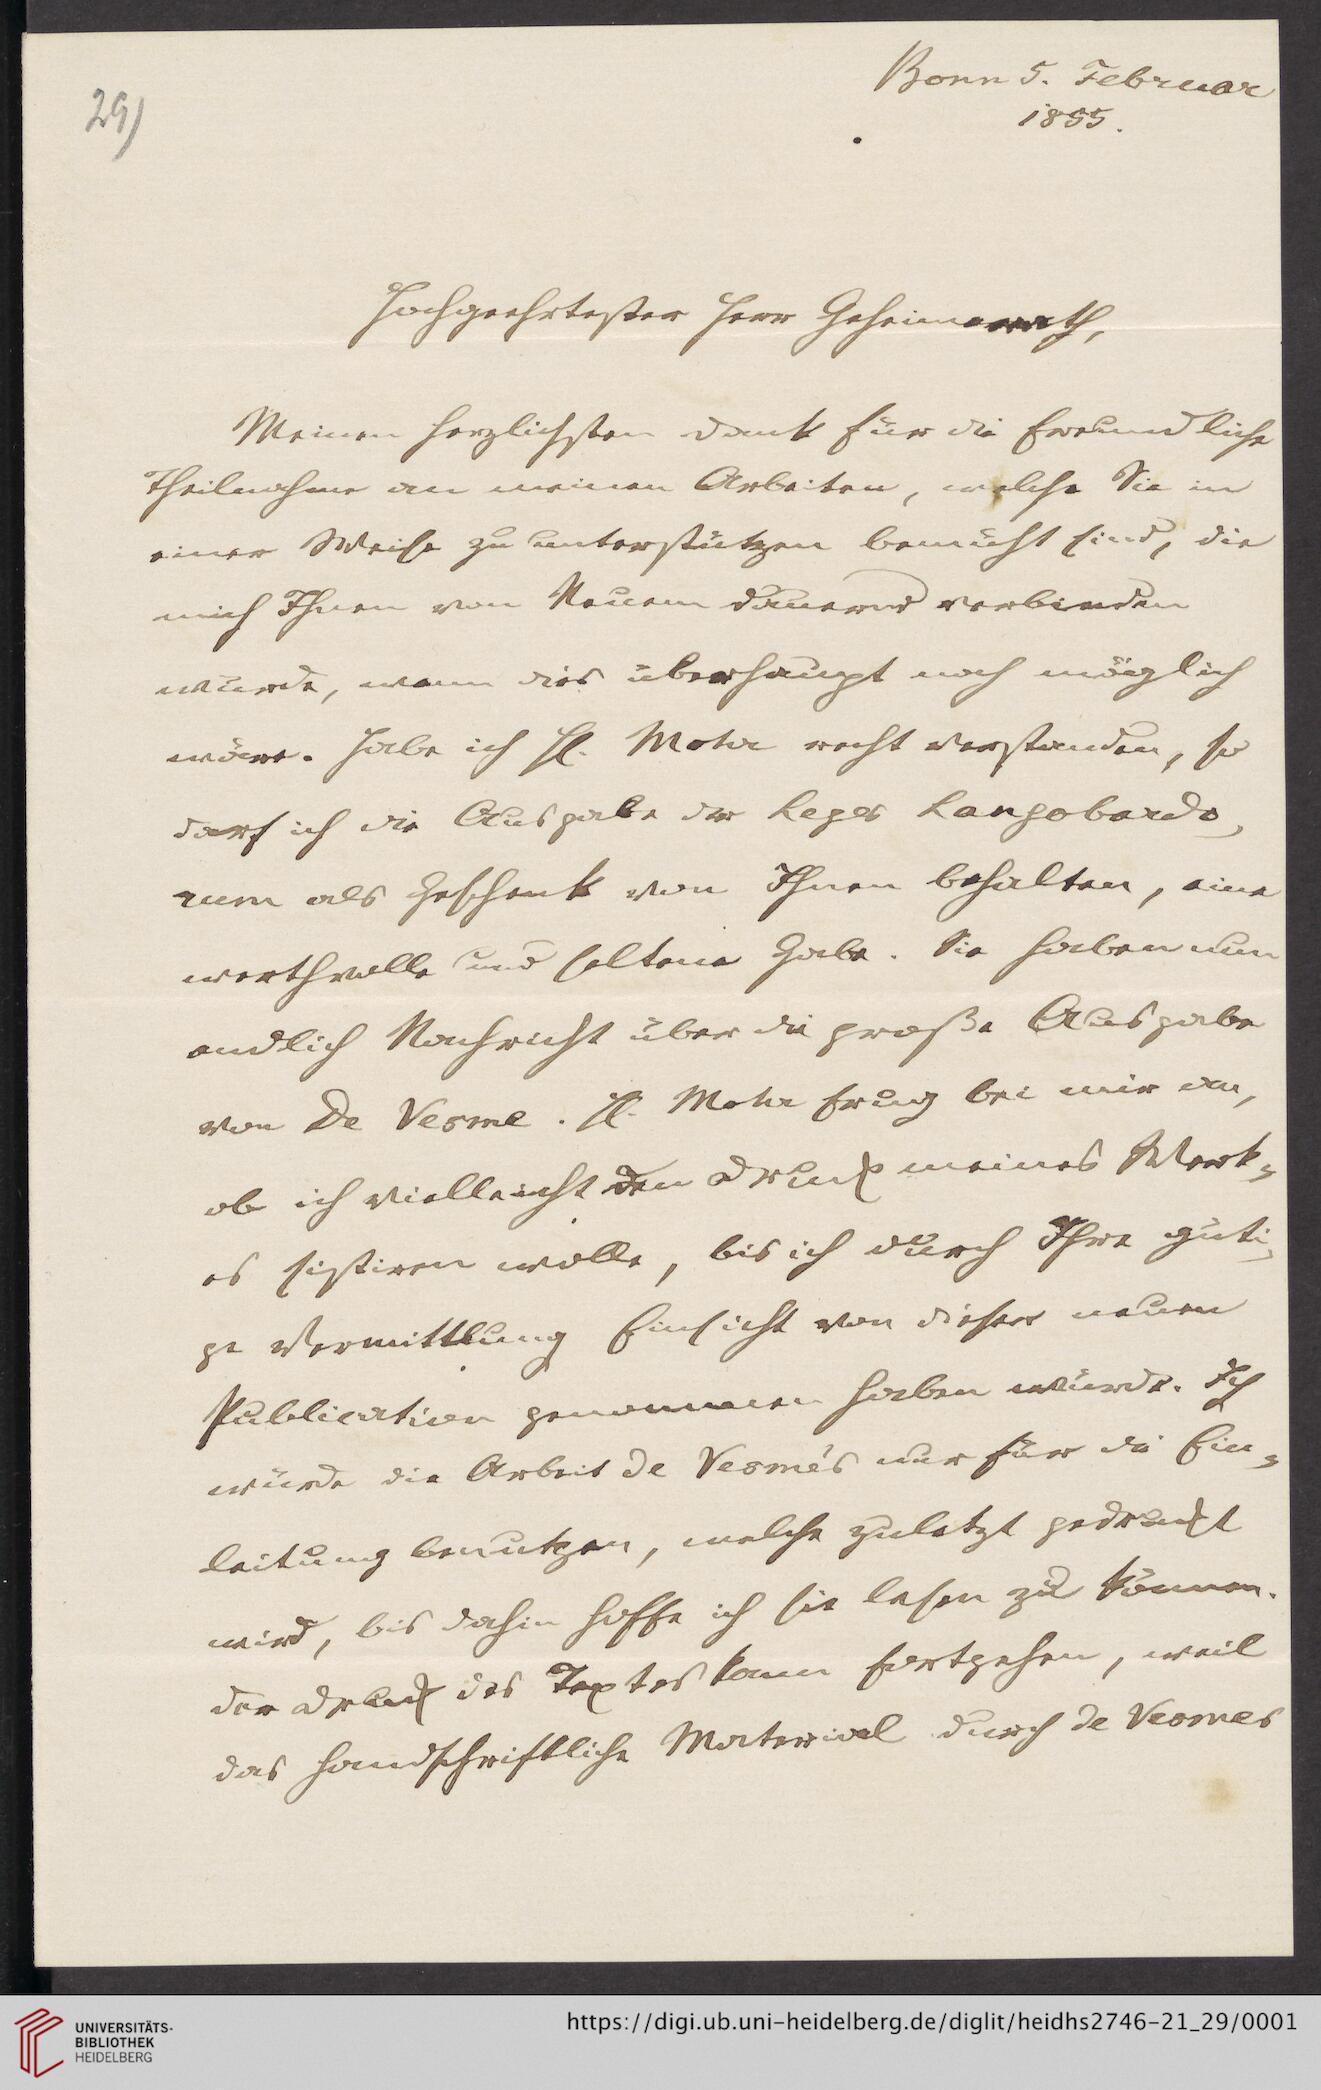 29)
Bonn 5. Februar
1855.
Hochgeehrtester Herr Geheimerath,
Meinen herzlichsten Dank für die freundliche
Theilnahme an meinen Arbeiten, welche Sie in
einer Weise zu unterstützen bemüht sind, die
mich Ihnen von Neuem dauernd verbinden
würde, wenn dies überhaupt noch möglich
wäre. Habe ich H. Mohr recht verstanden, so
darf ich die Ausgabe der Leges Langobardo-
rum als Geschenk von Ihnen behalten, eine
werthvolle und seltene Gabe. Sie haben nun
endlich Nachricht über die große Ausgabe
von De Vesme. H. Mohr frug bei mir an,
ob ich vielleicht den Druck meines Werk-
es sistiren wolle, bis ich durch Ihre güti-
ge Vermittlung Einsicht von dieser neuen
Publication genommen haben würde. Ich
würde die Arbeit de Vesme's nur für die Ein-
leitung benutzen, welche zuletzt gedruckt
wird, bis dahin hoffe ich sie lesen zu können.
der Druck des Textes kann fortgehen, weil
das handschriftliche Material durch de Vesmes
UNIVERSITÄTS-
BIBLIOTHEK
HEIDELBERG
https://digi.ub.uni-heidelberg.de/diglit/heidhs2746-21_29/0001